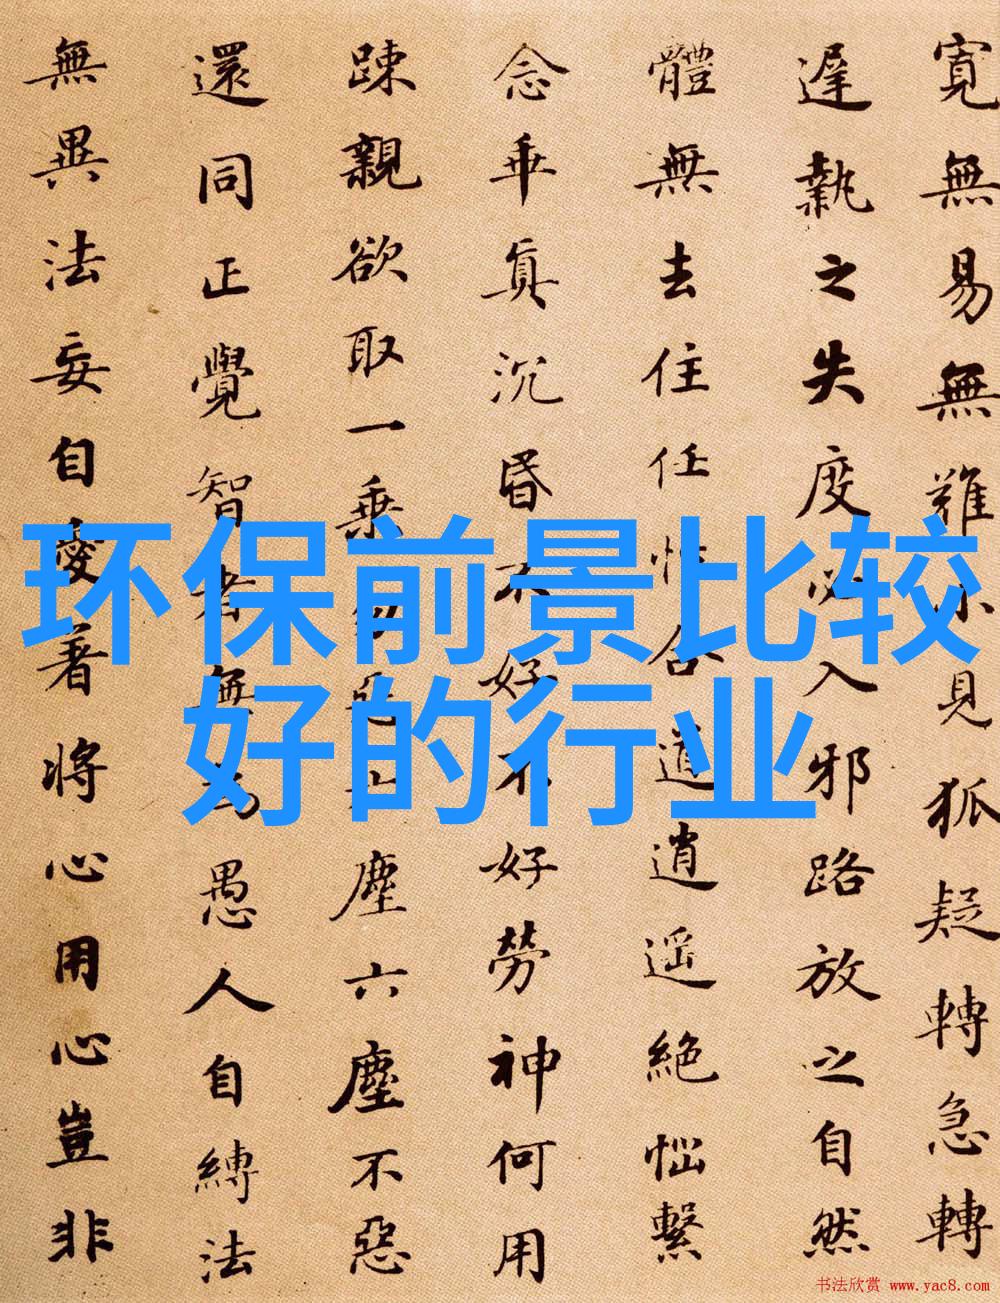 寬無易無難小見狐疑轉急轉
遲執之失度必入邪路放之自然
體無去住任性合道逍遥絶惱繫
念乖真沉昏不好不好勞神何用
踈親欲取一乘勿惡六塵六塵不惡
還同正覺智者無為愚人自縛法
無異法妄自愛著將心用心豈非
环保前景比较
好的行业
书法欣赏 www.yac8.com